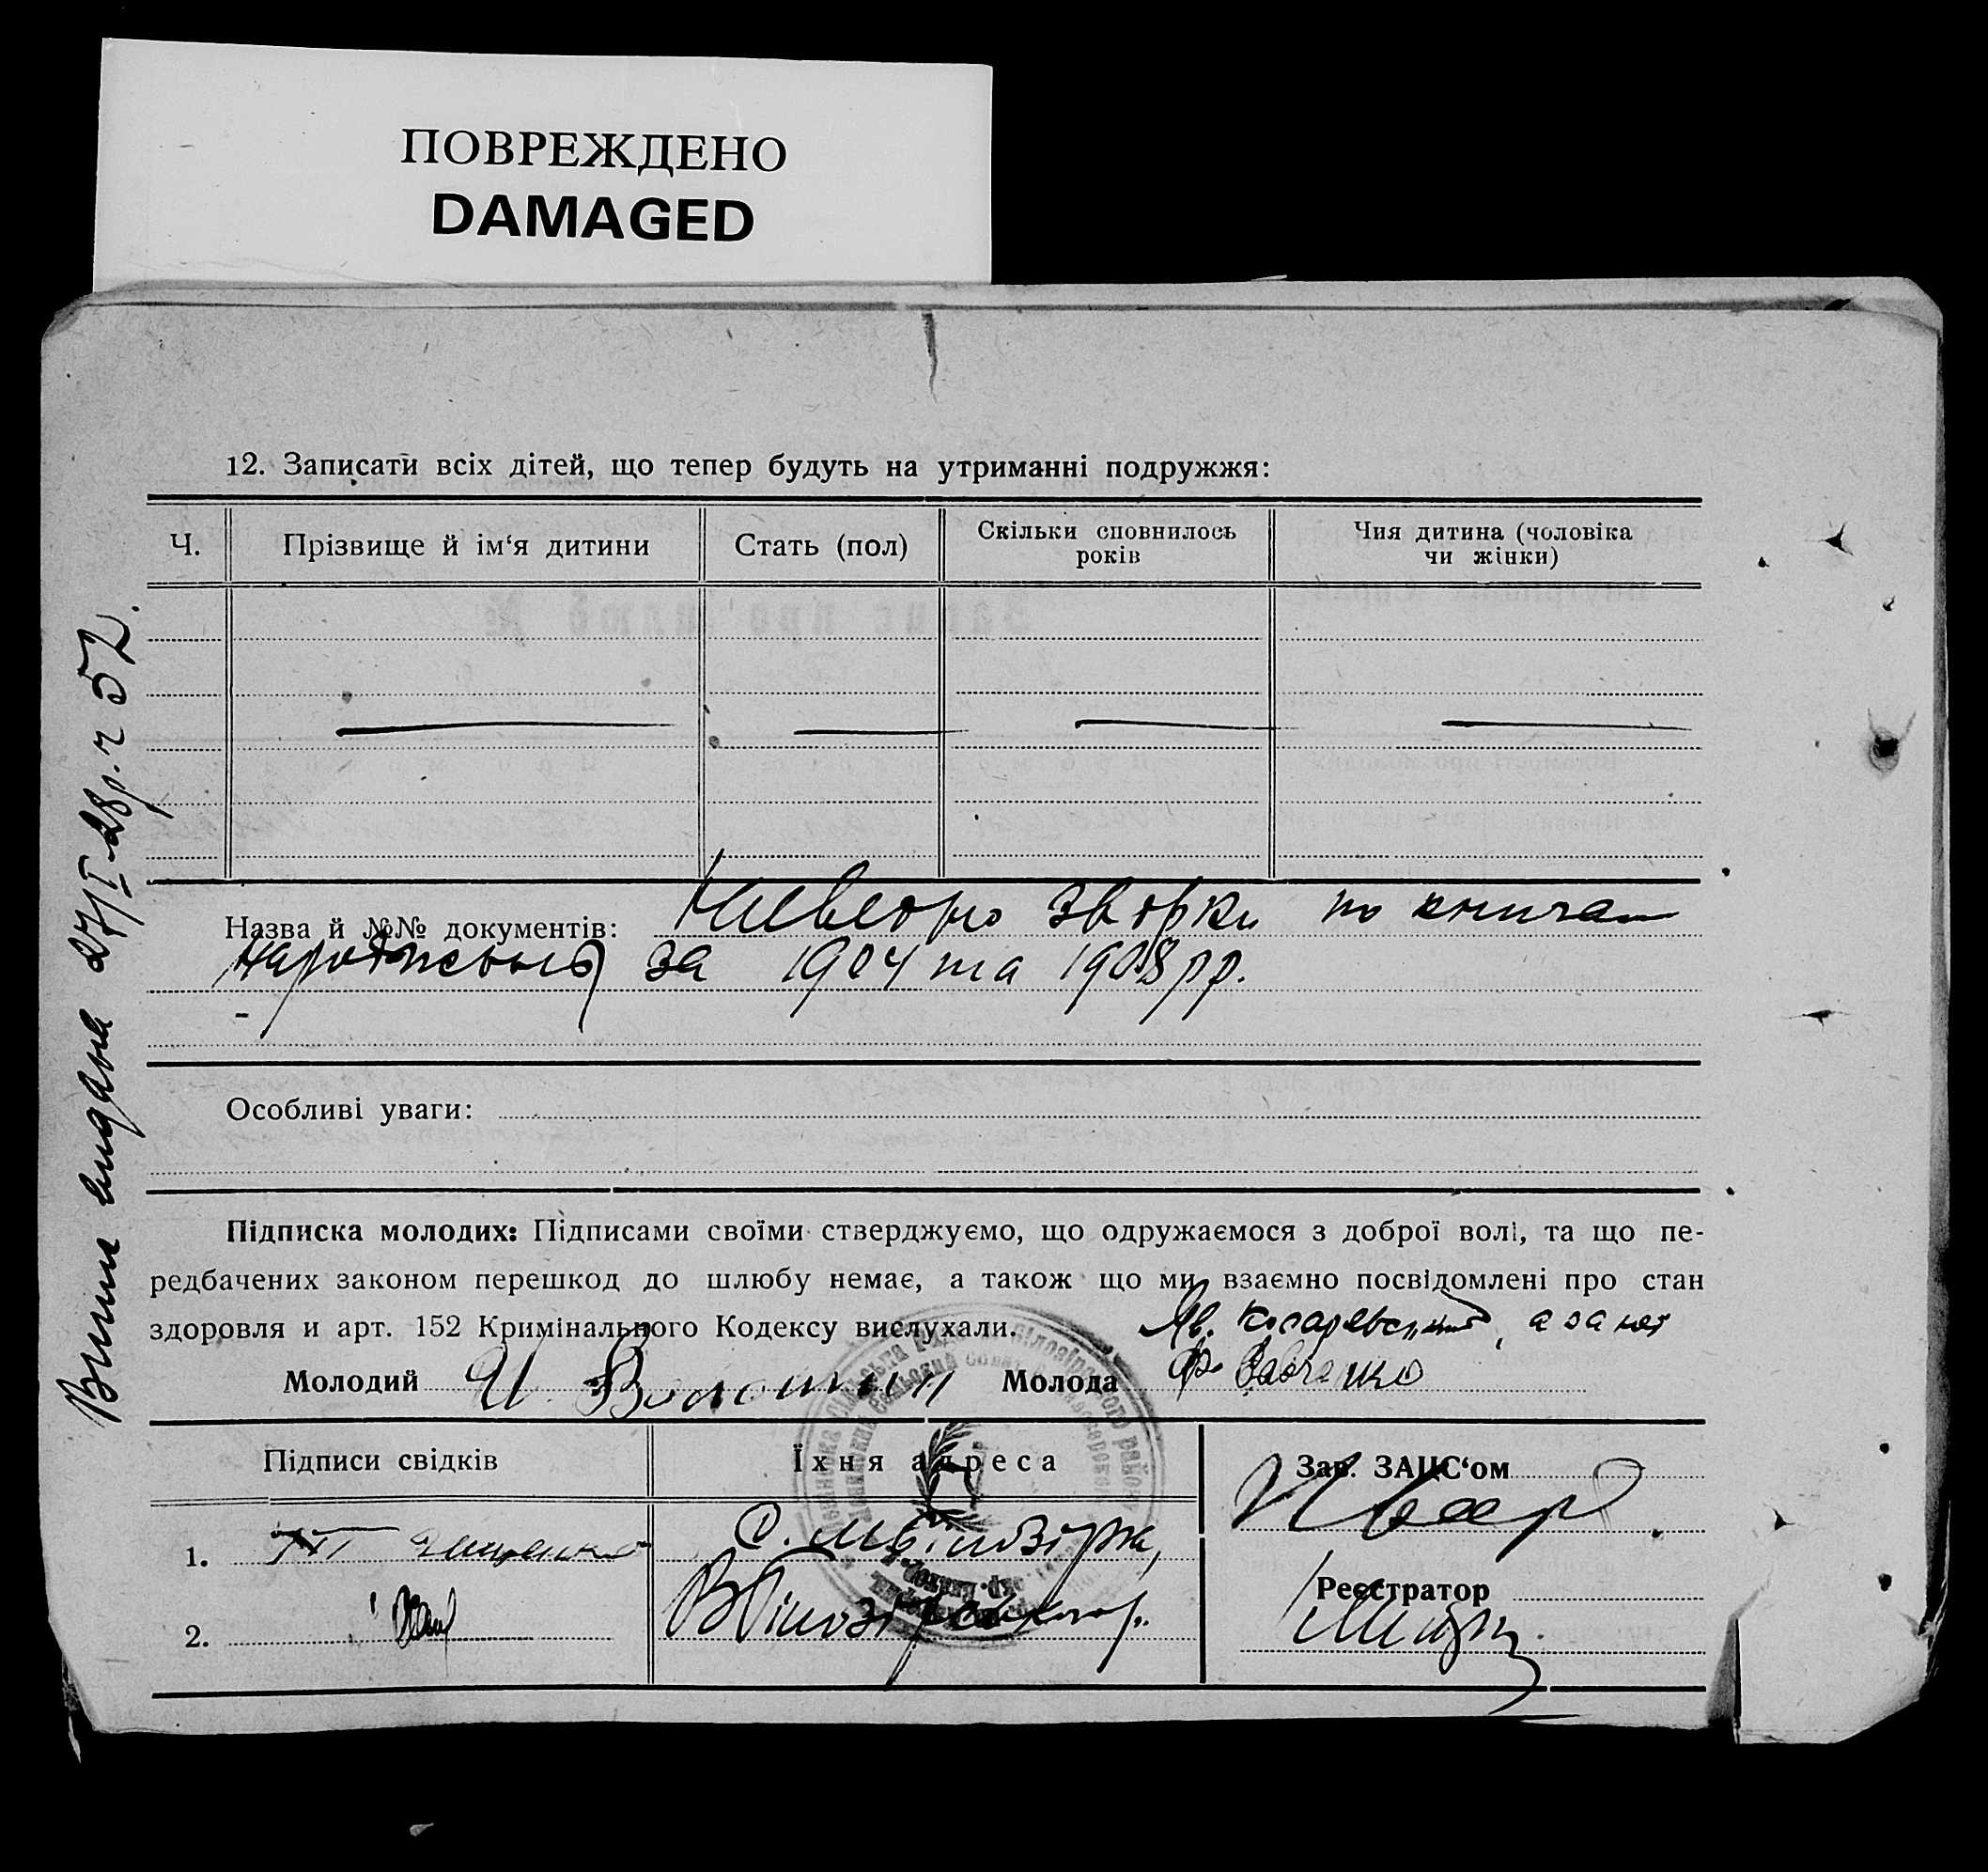 ПОВРЕЖДЕНО
DAMAGED
12. Записати всіх дітей, що тепер будуть на утриманні подружжя:
Ч. Прізвище й ім‘я дитини Стать (пол) Скільки сповнилось років Чия дитина (чоловіка чи жінки)
Назва й №№ документів: зворки по книгам
народження за 1904 та 1908 рр.
Особливі уваги:
Підписка молодих: Підписами своїми стверджуємо, що одружаємося з доброї волі, та що пе-
редбачених законом перешкод до шлюбу немає, а також що ми взаємно посвідомлені про стан
здоровля и арт. 152 Кримінального Кодексу вислухали.
а за неї
Молодий И. Волошин Молода
Підписи свідків Їхня адреса Зав. ЗАЦС‘ом
1. с.
Реєстратор
2.
Витяг видано 27/I 28 р. ч 52.